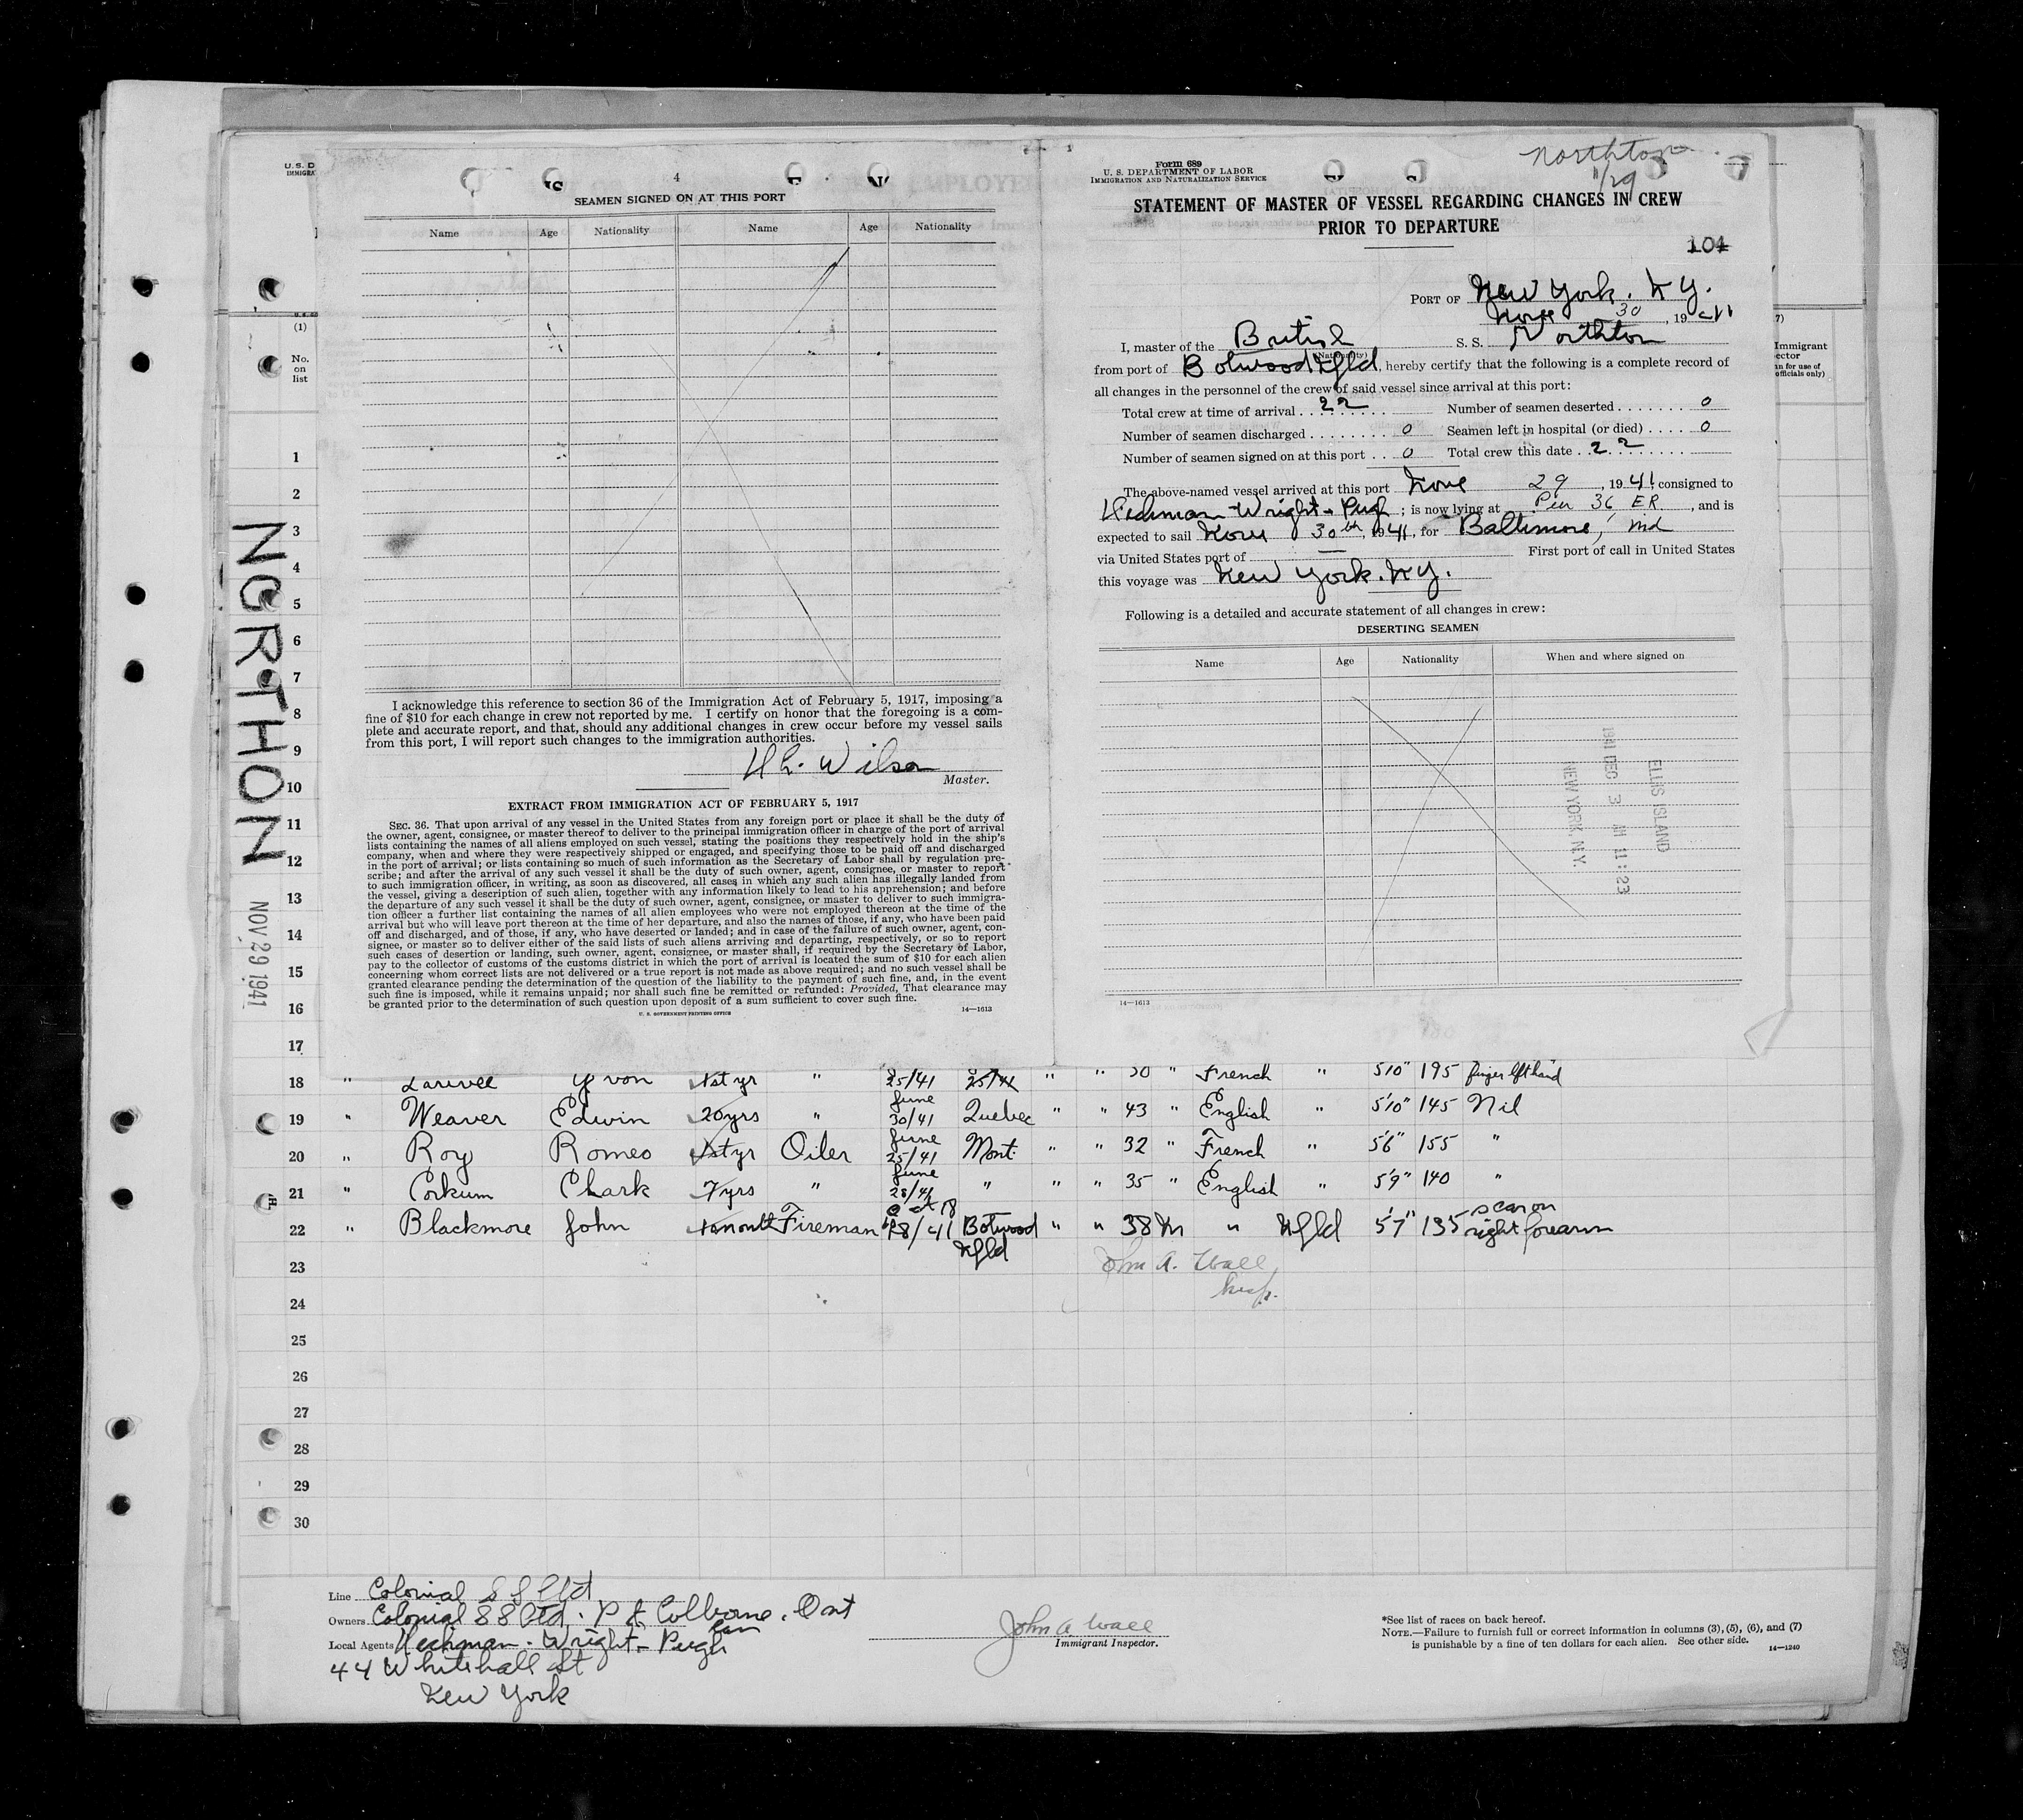 U. S. D
IMMIGRA
4
SEAMEN SIGNED ON AT THIS PORT
Name Age Nationality Name Age Nationality
I acknowledge this reference to section 36 of the Immigration Act of February 5, 1917, imposing a
fine of $10 for each change in crew not reported by me. I certify on honor that the foregoing is a com-
plete and accurate report, and that, should any additional changes in crew occur before my vessel sails
from this port, I will report such changes to the immigration authorities.
Wilson
Master.
EXTRACT FROM IMMIGRATION ACT OF FEBRUARY 5, 1917
SEC. 36. That upon arrival of any vessel in the United States from any foreign port or place it shall be the duty of
the owner, agent, consignee, or master thereof to deliver to the principal immigration officer in charge of the port of arrival
lists containing the names of all aliens employed on such vessel, stating the positions they respectively hold in the ship's
company, when and where they were respectively shipped or engaged, and specifying those to be paid off and discharged
in the port of arrival; or lists containing so much of such information as the Secretary of Labor shall by regulation pre-
scribe; and after the arrival of any such vessel it shall be the duty of such owner, agent, consignee, or master to report
to such immigration officer, in writing, as soon as discovered, all cases in which any such alien has illegally landed from
the vessel, giving a description of such alien, together with any information likely to lead to his apprehension; and before
the departure of any such vessel it shall be the duty of such owner, agent, consignee, or master to deliver to such immigra-
tion officer a further list containing the names of all alien employees who were not employed thereon at the time of the
arrival but who will leave port thereon at the time of her departure, and also the names of those, if any, who have been paid
off and discharged, and of those, if any, who have deserted or landed; and in case of the failure of such owner, agent, con-
signee, or master so to deliver either of the said lists of such aliens arriving and departing, respectively, or so to report
such cases of desertion or landing, such owner, agent, consignee, or master shall, if required by the Secretary of Labor,
pay to the collector of customs of the customs district in which the port of arrival is located the sum of $10 for each alien
concerning whom correct lists are not delivered or a true report is not made as above required; and no such vessel shall be
granted clearance pending the determination of the question of the liability to the payment of such fine, and, in the event
such fine is imposed, while it remains unpaid; nor shall such fine be remitted or refunded: Provided, That clearance may
be granted prior to the determination of such question upon deposit of a sum sufficient to cover such fine.
U. S. GOVERNMENT PRINTING OFFICE 14—1613
Form 689
U. S. DEPARTMENT OF LABOR
IMMIGRATION AND NATURALIZATION SERVICE
Northton
11/29
STATEMENT OF MASTER OF VESSEL REGARDING CHANGES IN CREW
PRIOR TO DEPARTURE
104
PORT OF New York. N Y.
Nove 30, 1941
I, master of the British S. S. Northton
(Nationality)
from port of Botwood Nfld, hereby certify that the following is a complete record of
all changes in the personnel of the crew of said vessel since arrival at this port:
Total crew at time of arrival 22 Number of seamen deserted 0
Number of seamen discharged 0 Seamen left in hospital (or died) 0
Number of seamen signed on at this port 0 Total crew this date 22
The above-named vessel arrived at this port Nove 29, 1941, consigned to
Heckman - Wright - Pugh; is now lying at Pier 36 ER, and is
expected to sail Nove 30th, 1941, for Baltimore, Md
via United States port of — First port of call in United States
this voyage was New York. N.Y.
Following is a detailed and accurate statement of all changes in crew:
DESERTING SEAMEN
Name Age Nationality When and where signed on
ELLIS ISLAND
1941 DEC 3 11:23
NEW YORK, N.Y.
14—1613
7)
Immigrant
ector
n for use of
officials only)
(1)
No.
on
list
NORTHON
NOV 29 1941
1
2
3
4
5
6
7
8
9
10
11
12
13
14
15
16
17
18 " Larivee Yvon 1st yr " 25/41 25/41 " " 30 " French " 5'10" 195 finger left hand
19 " Weaver Edwin 20yrs " June 30/41 Quebec " " 43 " English " 5'10" 145 Nil
20 " Roy Romeo 1st yr Oiler June 25/41 Mont. " " 32 " French " 5'6" 155 "
21 " Corkum Clark 7yrs " June 28/41 " " " 35 " English " 5'9" 140 "
22 " Blackmore John Fireman Oct 18/41 Botwood Nfld " " 38 " Nfld 5'7" 135 scar on right forearm
23
John A. Wall
Insp.
24
25
26
27
28
29
30
Line Colonial S S Ltd
Owners Colonial S S Ltd. Pt Colborne. Ont
Can
Local Agents Heckman - Wright - Pugh
44 Whitehall St
New York
John A. Wall
Immigrant Inspector.
*See list of races on back hereof.
NOTE.—Failure to furnish full or correct information in columns (3), (5), (6), and (7)
is punishable by a fine of ten dollars for each alien. See other side.
14—1240